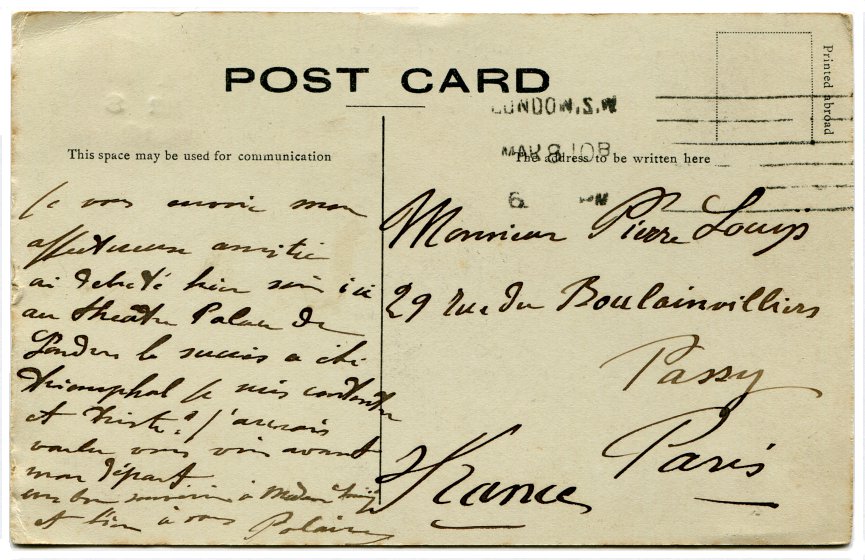 POST CARD
Printed abroad
LONDON.S.W
MAR 8 10B
6 PM
This space may be used for communication
The address to be written here
Je vous envoie mon
affectueuse amitié
ai débuté hier soir ici
au théatre Palace de
Londres le succès a été
triomphal je suis contente
et triste! j'aurais
voulu vous voir avant
mon départ
un bon souvenir à Madame Louÿs
et bien à vous Polaire
Monsieur Pierre Louÿs
29 rue du Boulainvilliers
Passy
Paris
France